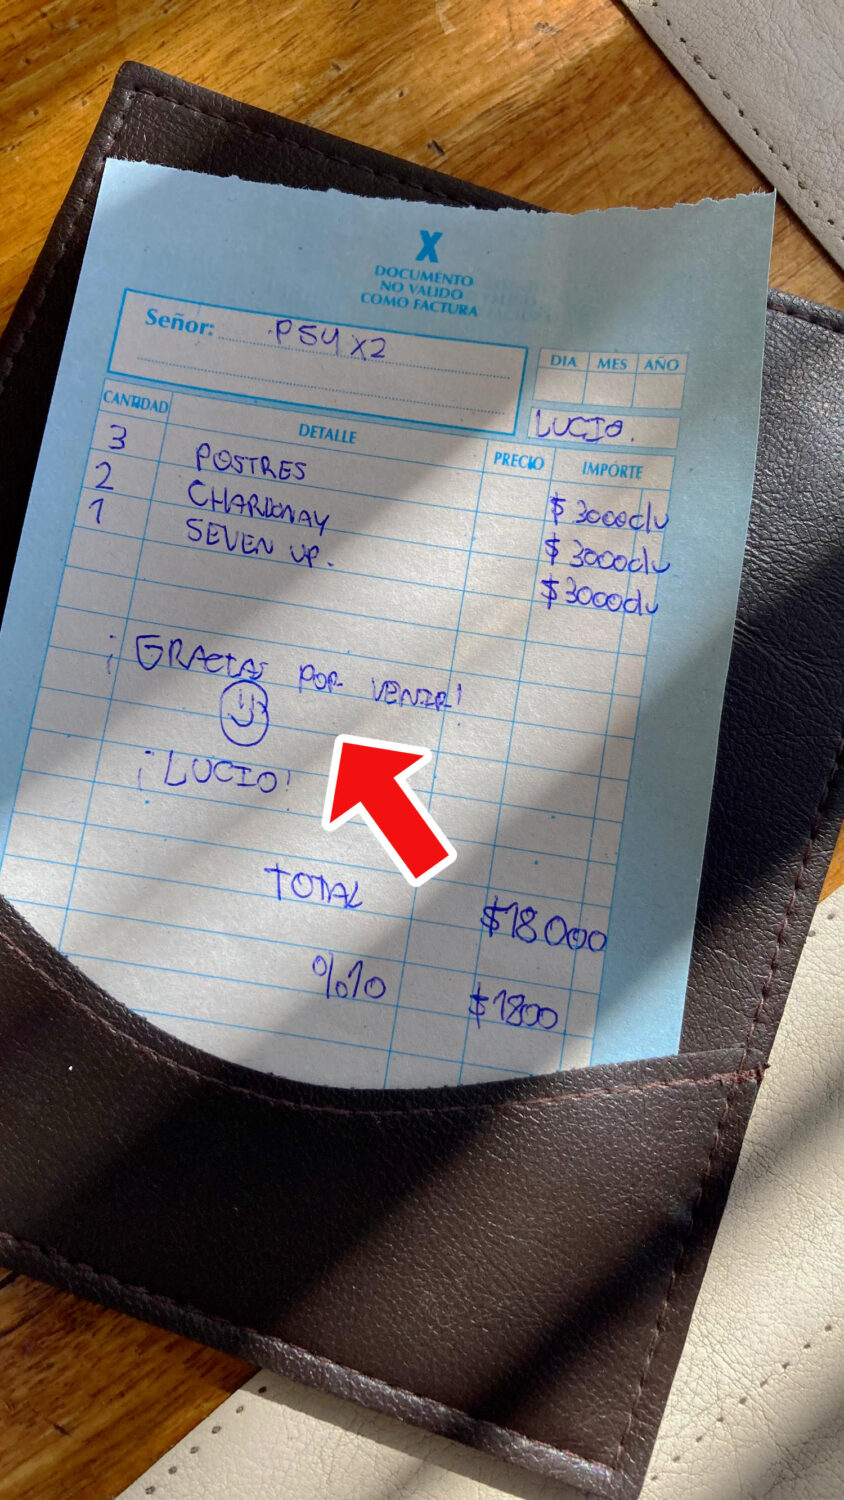 X
DOCUMENTO
NO VALIDO
COMO FACTURA
Señor: PS4 X2
DIA MES AÑO
LUCIO.
CANTIDAD DETALLE PRECIO IMPORTE
3 POSTRES $3000c/u
2 CHARDONAY $3000c/u
1 SEVEN UP. $3000c/u
¡GRACIAS POR VENIR!
¡LUCIO!
TOTAL $18000
%10 $1800